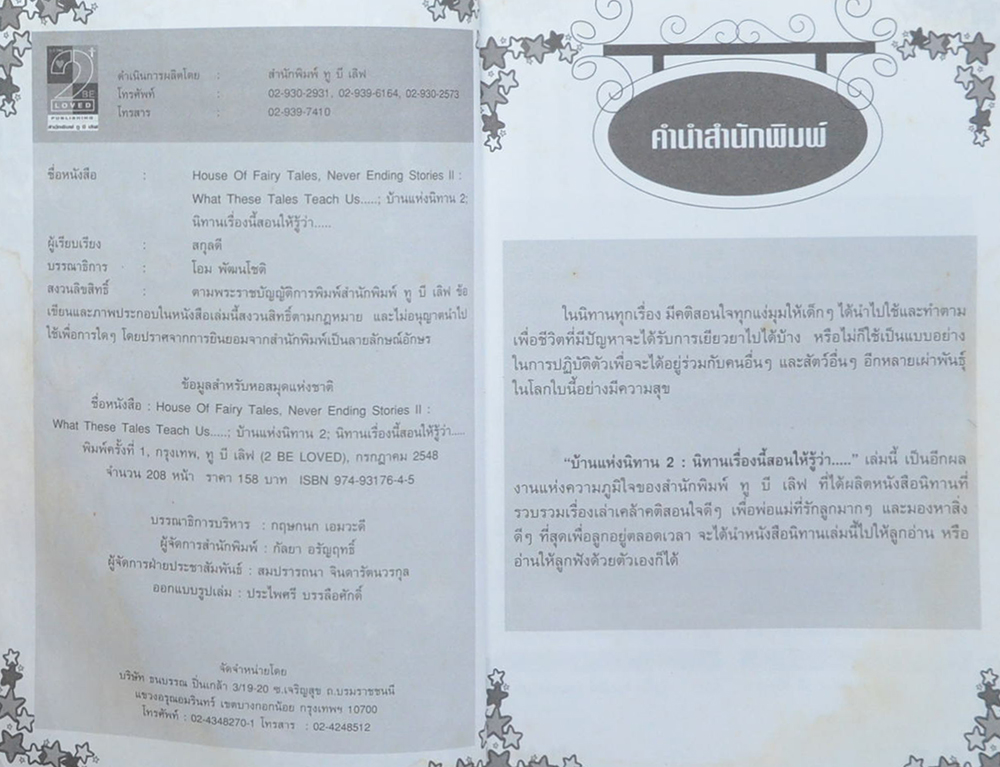 2
BE
LOVED
PUBLISHING
สำนักพิมพ์ ทู บี เลิฟ
ดำเนินการผลิตโดย : สำนักพิมพ์ ทู บี เลิฟ
โทรศัพท์ : 02-930-2931, 02-939-6164, 02-930-2573
โทรสาร : 02-939-7410
ชื่อหนังสือ : House Of Fairy Tales, Never Ending Stories II :
What These Tales Teach Us.....; บ้านแห่งนิทาน 2;
นิทานเรื่องนี้สอนให้รู้ว่า.....
ผู้เรียบเรียง : สกุลดี
บรรณาธิการ : โอม พัฒนโชติ
สงวนลิขสิทธิ์ : ตามพระราชบัญญัติการพิมพ์สำนักพิมพ์ ทู บี เลิฟ ข้อ
เขียนและภาพประกอบในหนังสือเล่มนี้สงวนสิทธิ์ตามกฎหมาย และไม่อนุญาตนำไป
ใช้เพื่อการใดๆ โดยปราศจากการยินยอมจากสำนักพิมพ์เป็นลายลักษณ์อักษร
ข้อมูลสำหรับหอสมุดแห่งชาติ
ชื่อหนังสือ : House Of Fairy Tales, Never Ending Stories II :
What These Tales Teach Us.....; บ้านแห่งนิทาน 2; นิทานเรื่องนี้สอนให้รู้ว่า.....
พิมพ์ครั้งที่ 1, กรุงเทพ, ทู บี เลิฟ (2 BE LOVED), กรกฎาคม 2548
จำนวน 208 หน้า ราคา 158 บาท ISBN 974-93176-4-5
บรรณาธิการบริหาร : กฤษกนก เอมวะดี
ผู้จัดการสำนักพิมพ์ : กัลยา อรัญฤทธิ์
ผู้จัดการฝ่ายประชาสัมพันธ์ : สมปรารถนา จินดารัตนวรกุล
ออกแบบรูปเล่ม : ประไพศรี บรรลือศักดิ์
จัดจำหน่ายโดย
บริษัท ธนบรรณ ปิ่นเกล้า 3/19-20 ซ.เจริญสุข ถ.บรมราชชนนี
แขวงอรุณอมรินทร์ เขตบางกอกน้อย กรุงเทพฯ 10700
โทรศัพท์ : 02-4348270-1 โทรสาร : 02-4248512
คำนำสำนักพิมพ์
ในนิทานทุกเรื่อง มีคติสอนใจทุกแง่มุมให้เด็กๆ ได้นำไปใช้และทำตาม
เพื่อชีวิตที่มีปัญหาจะได้รับการเยียวยาไปได้บ้าง หรือไม่ก็ใช้เป็นแบบอย่าง
ในการปฏิบัติตัวเพื่อจะได้อยู่ร่วมกับคนอื่นๆ และสัตว์อื่นๆ อีกหลายเผ่าพันธุ์
ในโลกใบนี้อย่างมีความสุข
“บ้านแห่งนิทาน 2 : นิทานเรื่องนี้สอนให้รู้ว่า.....” เล่มนี้ เป็นอีกผล
งานแห่งความภูมิใจของสำนักพิมพ์ ทู บี เลิฟ ที่ได้ผลิตหนังสือนิทานที่
รวบรวมเรื่องเล่าเคล้าคติสอนใจดีๆ เพื่อพ่อแม่ที่รักลูกมากๆ และมองหาสิ่ง
ดีๆ ที่สุดเพื่อลูกอยู่ตลอดเวลา จะได้นำหนังสือนิทานเล่มนี้ไปให้ลูกอ่าน หรือ
อ่านให้ลูกฟังด้วยตัวเองก็ได้